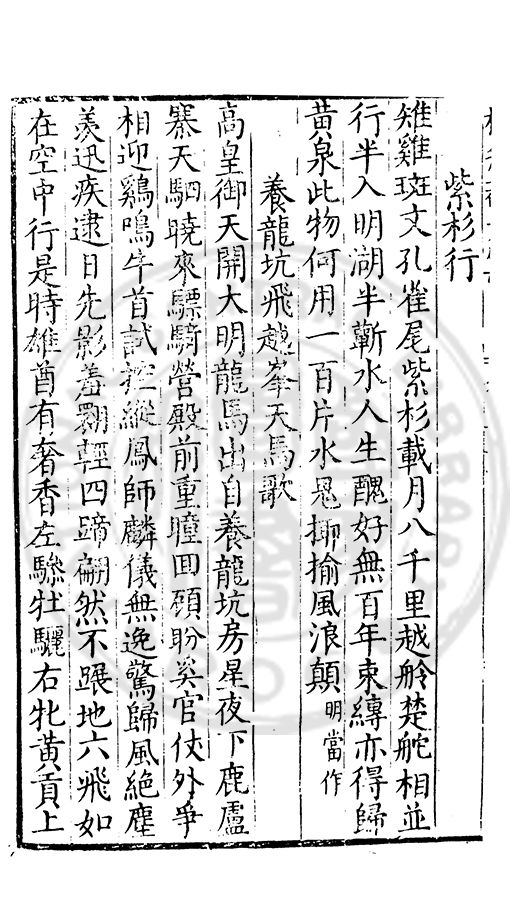 紫杉行
雉雞斑文孔雀尾紫杉載月八千里越舲楚舵相並
行半入明湖半蘄水人生醜好無百年束縛亦得歸
黃泉此物何用一百片水鬼揶揄風浪顛明當作
養龍坑飛越峯天馬歌
高皇御天開大明龍馬出自養龍坑房星夜下鹿盧
寨天駟曉來驃騎營殿前重瞳回顧盼奚官伎外爭
相迎鷄鳴牛首試控縱鳳師麟儀無逸驚歸風絕塵
羨迅疾逮日先影羞翾輕四蹄翩然不蹍地六飛如
在空中行是時雄酋有奢香左驂牡驪右牝黃貢上